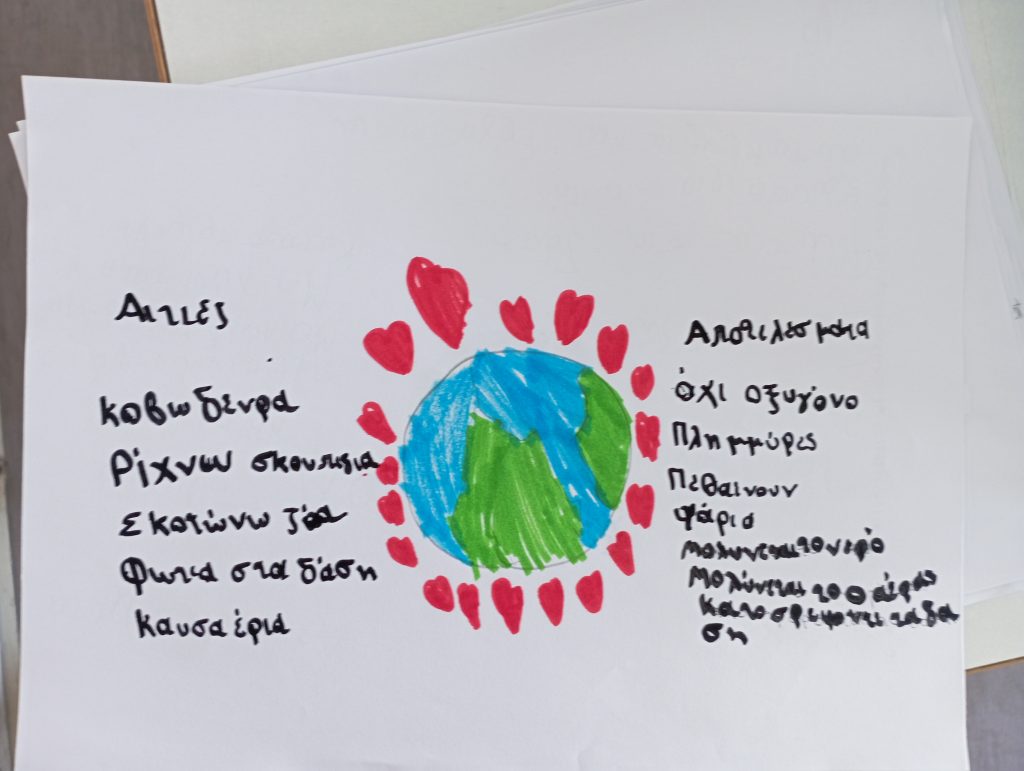 Αιτιές
κοβω δενρα
Ρίχνων σκουπιδια
Σκοτώνω ζώα
Φωτιά στα δάση
καυσαέρια
Αποτελεσματα
όχι οξυγόνο
Πλημμύρες
Πεθαινουν
ψάρια
μολυνεται το νερό
Μολύνεται το ο αέρας
τα δα
ση